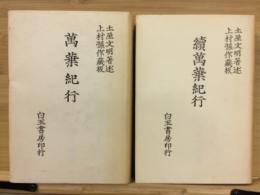 土屋文明著述
上村孫作蔵板
萬葉紀行
白玉書房印行
土屋文明著述
上村孫作蔵板
續萬葉紀行
白玉書房印行